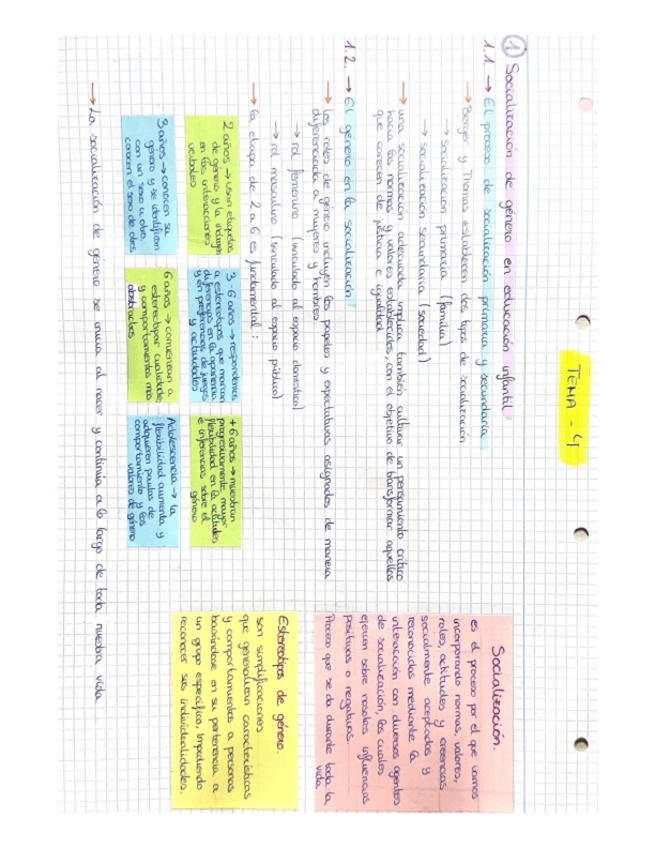 TEMA - 4
① Socialización de género en educación infantil
1.1. → El proceso de socialización primaria y secundaria
→ Berger y Thomas establecen dos tipos de socialización
→ socialización primaria (familia)
→ socialización secundaria (sociedad)
→ una socialización adecuada implica también cultivar un pensamiento crítico
hacia las normas y valores establecidos, con el objetivo de transformar aquellos
que carecen de justicia e igualdad
1.2. → El género en la socialización
→ los roles de género incluyen los papeles y expectativas asignados de manera
diferenciada a mujeres y hombres
→ rol femenino (vinculado al espacio doméstico)
→ rol masculino (vinculado al espacio público)
→ la etapa de 2 a 6 es fundamental:
2 años → usan etiquetas
de género y la incluyen
en las interacciones
verbales
3-6 años → responden
a estereotipos que marcan
diferencias en la apariencia
y en preferencias de juegos
y actividades
+6 años → muestran
progresivamente mayor
flexibilidad en la actitudes
e inferencias sobre el
género
3 años → conocen su
género y se identifican
con un sexo u otro.
conocen el sexo de otros
6 años → comienzan a
estereotipar cualidades
y comportamientos más
abstractos
Adolescencia → la
flexibilidad aumenta y
adquieren pautas de
comportamiento y los
valores de género
→ La socialización de género se inicia al nacer y continúa a lo largo de toda nuestra vida
Socialización.
es el proceso por el que vamos
incorporando normas, valores,
roles, actitudes y creencias
socialmente aceptados y
reconocidos mediante la
interacción con diversos agentes
de socialización, los cuales
ejercen sobre nosotros influencias
positivas o negativas.
Proceso que se da durante toda la
vida
Estereotipos de género.
son simplificaciones
que generalizan características
y comportamientos a personas
basándose en su pertenencia a
un grupo específico, impidiendo
reconocer sus individualidades.